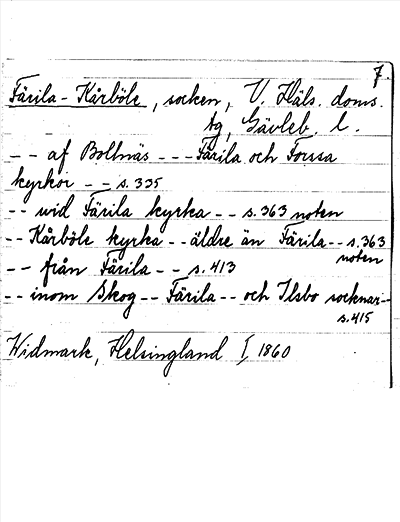 7.
Färila-Kårböle, socken, V. Häls. doms.
tg, Gävleb. l.
-- af Bollnäs --- Färila och Forssa
kyrkor -- s. 335
-- wid Färila kyrka -- s. 363 noten
-- Kårböle kyrka -- äldre än Färila -- s. 363
noten
-- från Färila -- s. 413
-- inom Skog -- Färila -- och Ilsbo socknar --
s. 415
Widmark, Helsingland I, 1860